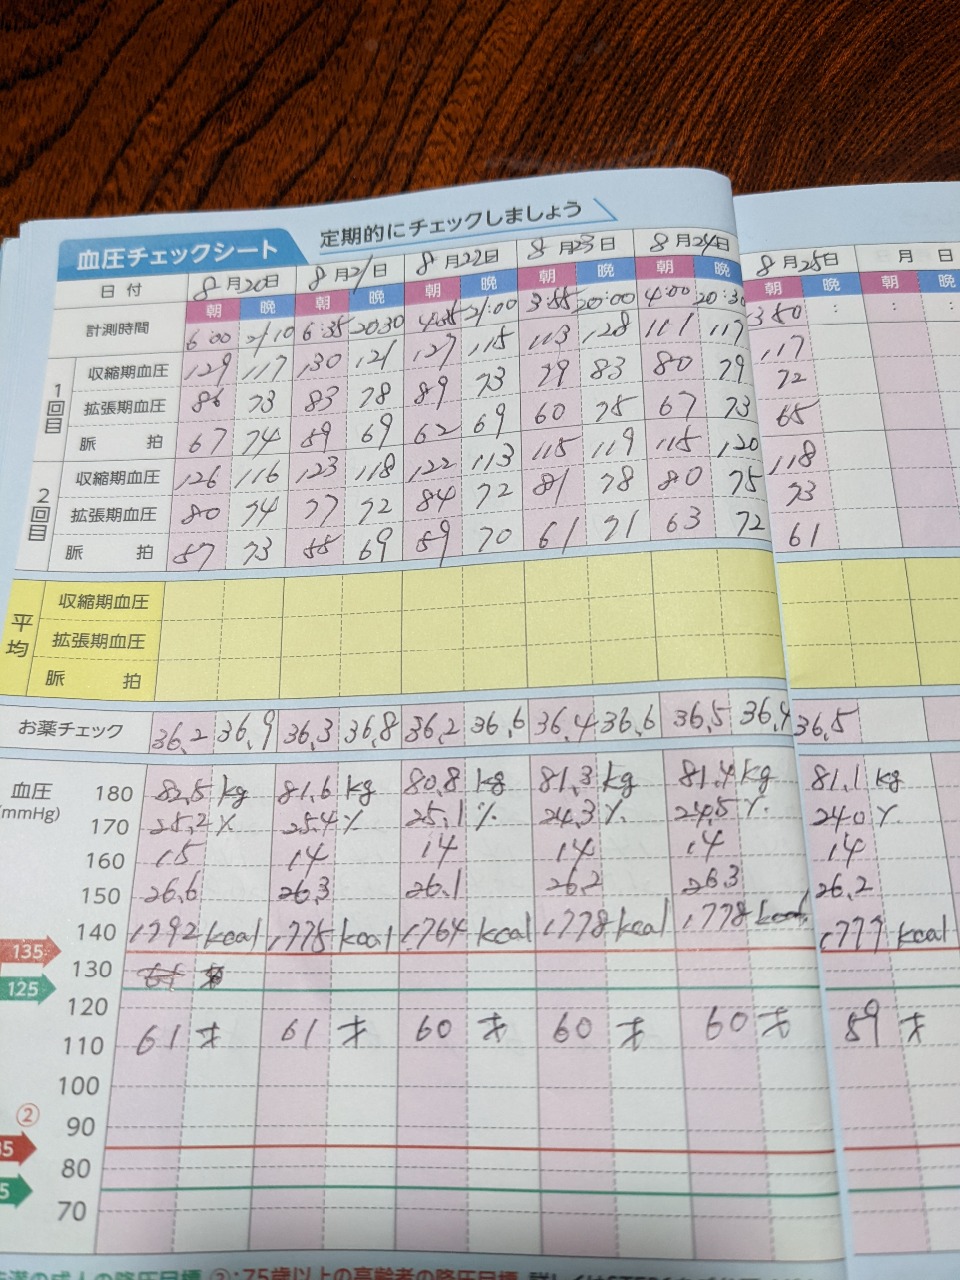 血圧チェックシート 定期的にチェックしましょう
日付 8月20日 8月21日 8月22日 8月23日 8月24日 8月25日 月 日
朝 晩 朝 晩 朝 晩 朝 晩 朝 晩 朝 晩 朝
計測時間 6:00 21:10 6:35 20:30 4:35 21:00 3:55 20:00 4:00 20:30 350 : : :
1回目
収縮期血圧 129 117 130 121 127 115 113 128 111 117 117
拡張期血圧 86 73 83 78 89 73 79 83 80 79 72
脈拍 67 74 59 69 62 69 60 75 67 73 65
2回目
収縮期血圧 126 116 123 118 122 113 115 119 115 120 118
拡張期血圧 80 74 77 72 84 72 81 78 80 75 73
脈拍 57 73 58 69 59 70 61 71 63 72 61
平均
収縮期血圧
拡張期血圧
脈拍
お薬チェック 36.2 36.9 36.3 36.8 36.2 36.6 36.4 36.6 36.5 36.4 36.5
血圧 (mmHg)
180 82.5 kg 81.6 kg 80.8 kg 81.3 kg 81.4 kg 81.1 kg
170 25.2% 25.4% 25.1% 24.3% 24.5% 24.0%
160 15 14 14 14 14 14
150 26.6 26.3 26.1 26.2 26.3 26.2
140 1792 kcal 1775 kcal 1764 kcal 1778 kcal 1778 kcal 1777 kcal
135
130
125
120
110 61才 61才 60才 60才 60才 59才
100
②
90
85
80
5
70
②:75歳以上の高齢者の降圧目標